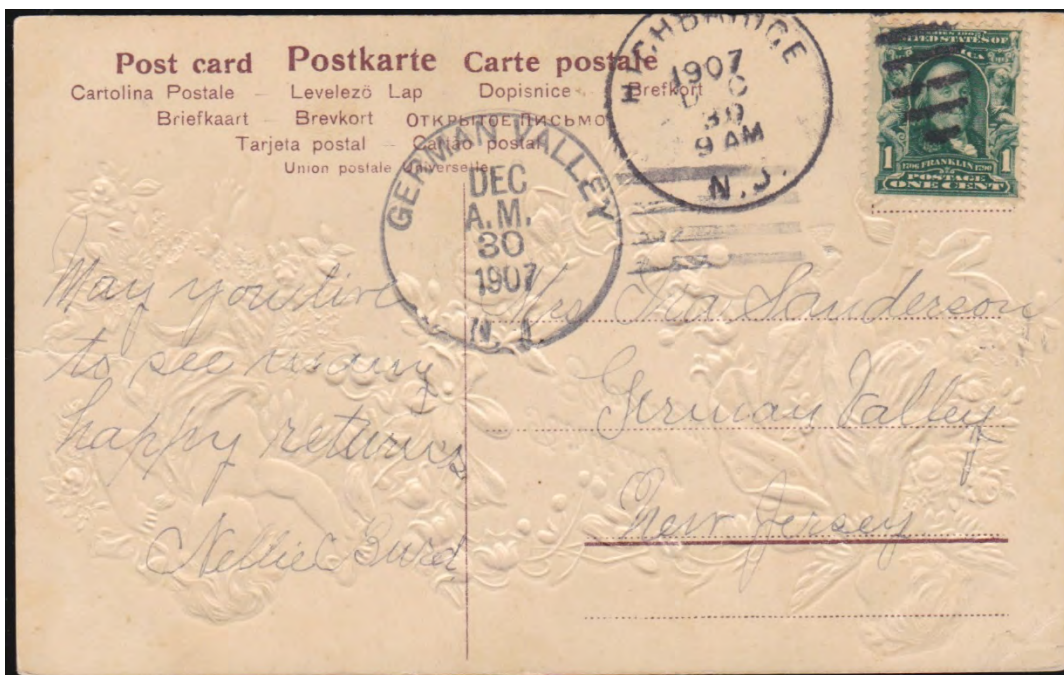 Post card Postkarte Carte postale
Cartolina Postale – Levelezö Lap Dopisnice – Brefkort
Briefkaart – Brevkort ОТКРЫТОЕ ПИСЬМО
Tarjeta postal – Cartão postal
Union postale universelle
HIGH BRIDGE
1907
DEC
30
9 AM
N.J.
UNITED STATES OF
1706 FRANKLIN 1790
1 POSTAGE 1
ONE CENT
GERMAN VALLEY
DEC
A.M.
30
1907
N.J.
May you live
to see many
happy returns
Nellie Burd
Mrs Ira Sanderson
German Valley
New Jersey